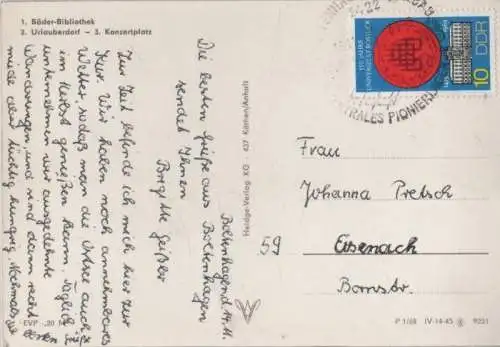 1. Bäder-Bibliothek
2. Urlauberdorf – 3. Konzertplatz
Boltenhagen, d. 14.11.
Die besten Grüße aus Boltenhagen
sendet Ihnen
Brigitte Geißler
Zur Zeit befinde ich mich hier zur
Kur. Wir haben noch annehmbares
Wetter, so daß man die Ostsee auch
im Herbst genießen kann. Täglich
unternehmen wir ausgedehnte
Wanderungen, und sind dann recht
müde aber tüchtig hungrig. Nochmals
EVP -,20 M
Heldge-Verlag KG · 437 Köthen/Anhalt
150 JAHRE
UNIVERSITÄT ROSTOCK
DDR
10
ZENTRALES PIONIERL
Frau
Johanna Pretsch
59 Eisenach
Bornstr.
P 1/68 IV-14-45 9231